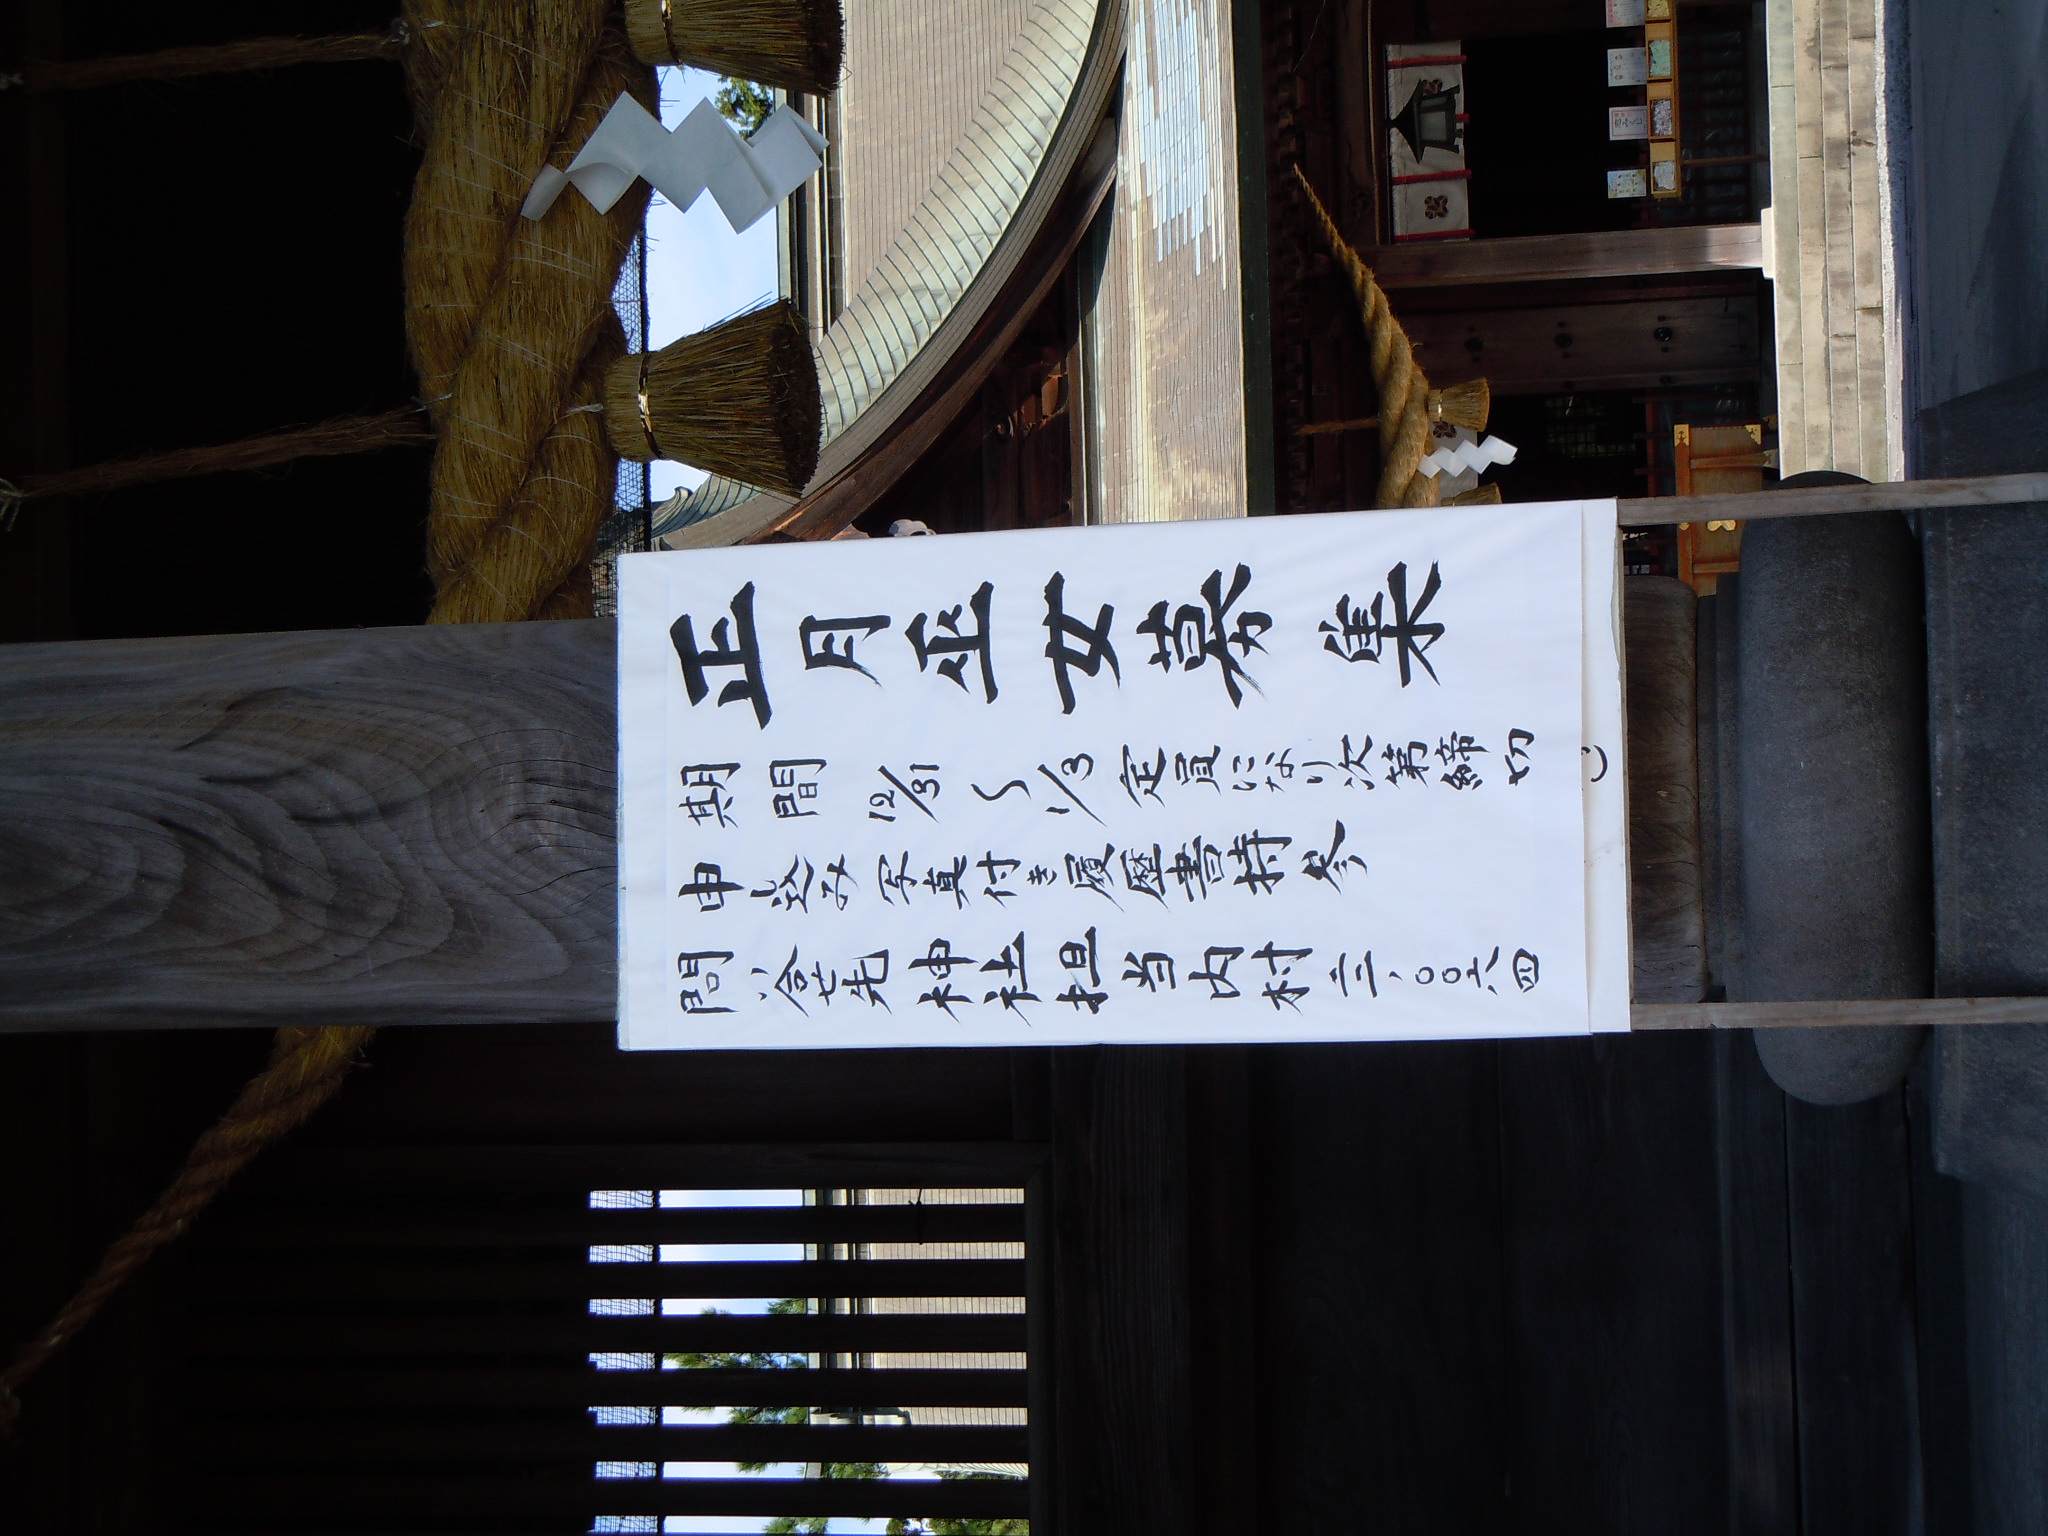 正月巫女募集
期間 12/31〜1/3 定員になり次第締切
申し込み 写真付き履歴書持参
問い合せ先 神社担当 内村 二二、〇〇六四